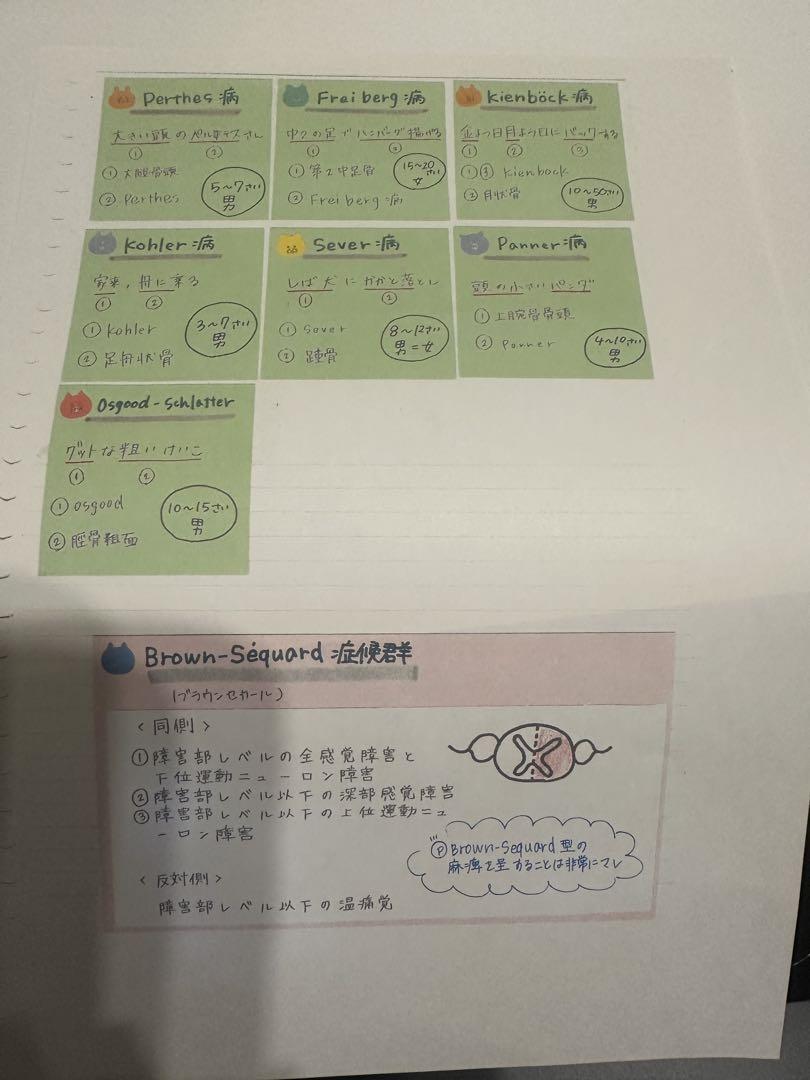 Perthes病
大きい頭のペルテスさん
① ②
① 大腿骨頭
② Perthes
5〜7さい
男
Freiberg病
中2の足でハンバーグ揚げる
① ②
① 第2中足骨
② Freiberg病
15〜20さい
女
Kienböck病
金よう日月よう日にバックする
① ② ③
①③ Kienbock
② 月状骨
10〜50さい
男
Kohler病
家来,舟に乗る
① ②
① Kohler
② 足舟状骨
3〜7さい
男
Sever病
しば犬にかかと落とし
① ②
① Sever
② 踵骨
8〜12さい
男=女
Panner病
頭の小さいパンダ
① 上腕骨骨頭
② Panner
4〜10さい
男
Osgood-Schlatter
グットな粗いけいこ
① ②
① Osgood
② 脛骨粗面
10〜15さい
男
Brown-Séquard 症候群
(ブラウンセカール)
<同側>
①障害部レベルの全感覚障害と
下位運動ニューロン障害
②障害部レベル以下の深部感覚障害
③障害部レベル以下の上位運動ニュ
ーロン障害
Ⓟ Brown-Sequard型の
麻痺を呈することは非常にマレ
<反対側>
障害部レベル以下の温痛覚